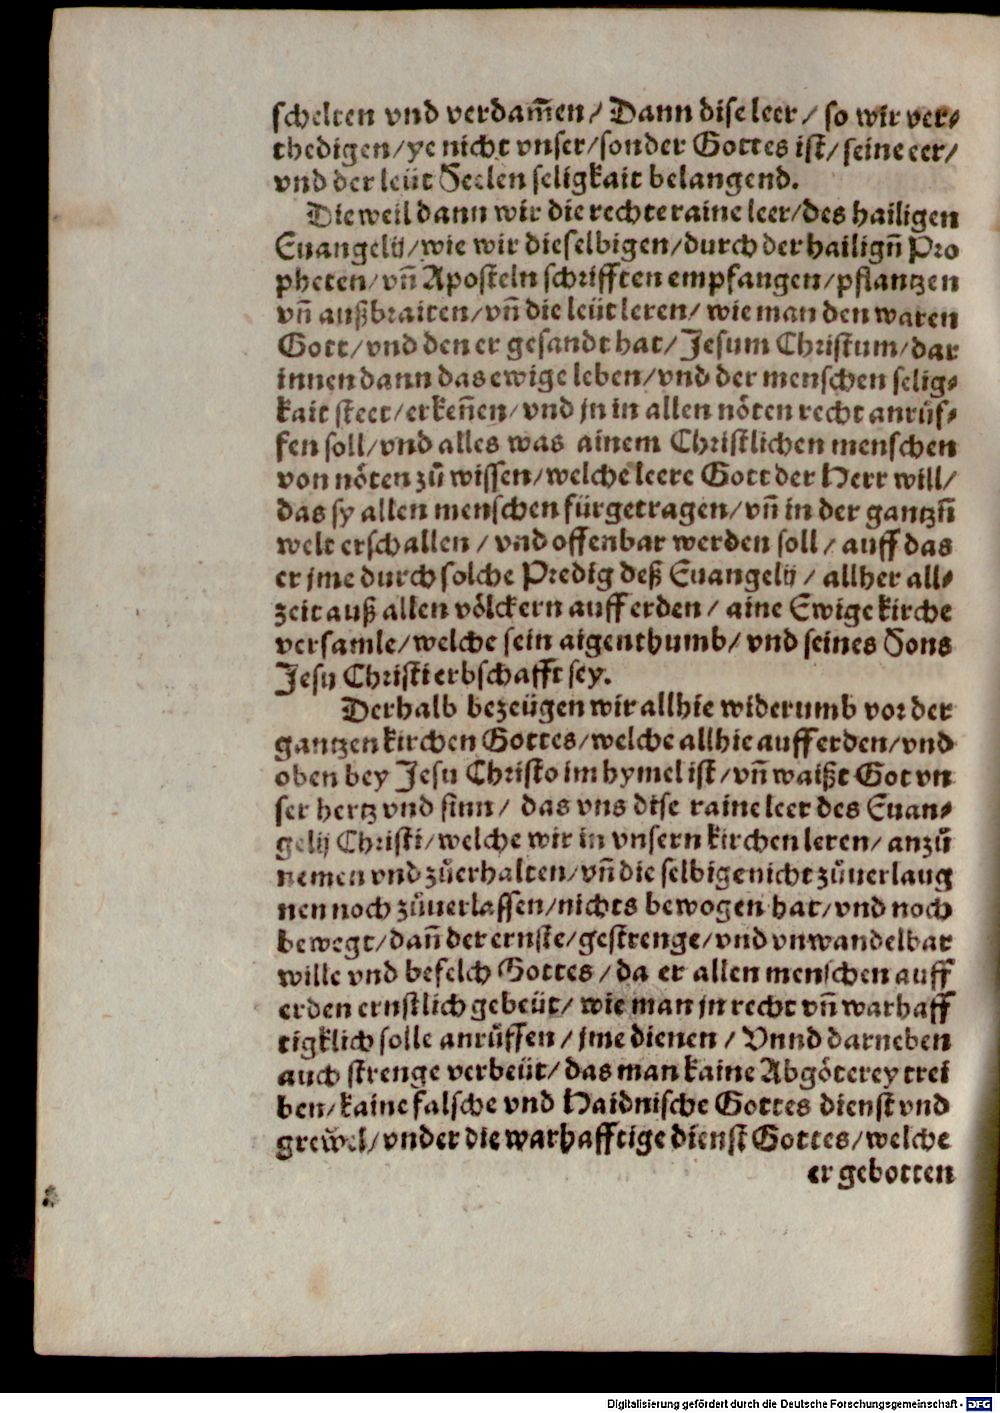 schelten vnd verdam̃en/ Dann dise leer/ so wir ver⸗
thedigen/ye nicht vnser/sonder Gottes ist/ seine eer/
vnd der leüt Seelen seligkait belangend.
Die weil dann wir die rechte raine leer/des hailigen
Euangelij/wie wir dieselbigen/durch der hailigñ Pro
pheten/vñ Aposteln schrifften empfangen/pflantzen
vñ außbraiten/vñ die leüt leren/ wie man den waren
Gott/vnd den er gesandt hat/Jesum Christum/dar
innen dann das ewige leben/vnd der menschen selig⸗
kait steet/erkeñen/vnd jn in allen nöten recht anrůf⸗
fen soll/vnd alles was ainem Christlichen menschen
von nöten zů wissen/welche leere Gott der Herr will/
das sy allen menschen fürgetragen/vñ in der gantzñ
welt erschallen / vnd offenbar werden soll/ auff das
er jme durch solche Predig deß Euangelij / allher all⸗
zeit auß allen völckern auff erden/ aine Ewige kirche
versamle/welche sein aigenthumb/ vnd seines Sons
Jesu Christi erbschafft sey.
Derhalb bezeügen wir allhie widerumb vor der
gantzen kirchen Gottes/welche allhie auff erden/vnd
oben bey Jesu Christo im hymel ist/vñ waißt Got vn
ser hertz vnd sinn/ das vns dise raine leer des Euan⸗
gelij Christi/welche wir in vnsern kirchen leren/ anzů
nemen vnd zůerhalten/vñ die selbige nicht zůuerlaug
nen noch zůuerlassen/nichts bewogen hat/vnd noch
bewegt/dañ der ernste/gestrenge/vnd vnwandelbar
wille vnd befelch Gottes /da er allen menschen auff
erden ernstlich gebeüt/ wie man jn recht vñ warhaff
tigklich solle anrůffen/jme dienen / Vnnd darneben
auch strenge verbeüt/das man kaine Abgöterey trei
ben/kaine falsche vnd Haidnische Gottes dienst vnd
grewel/vnder die warhafftige dienst Gottes/welche
er gebotten
Digitalisierung gefördert durch die Deutsche Forschungsgemeinschaft - DFG